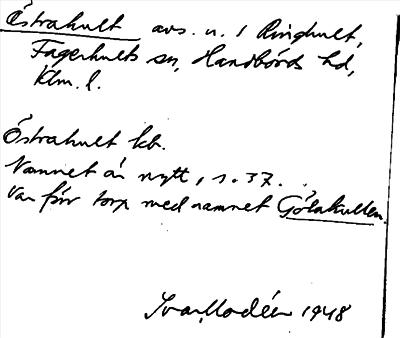 Östrahult avs. u. 1 Ringhult,
Fagerhults sn, Handbörds hd,
Klm. l.
Östrahult kb.
Namnet är nytt, s. 37.
Var förr torp med namnet Götakullen.
Ivar Modéer 1948